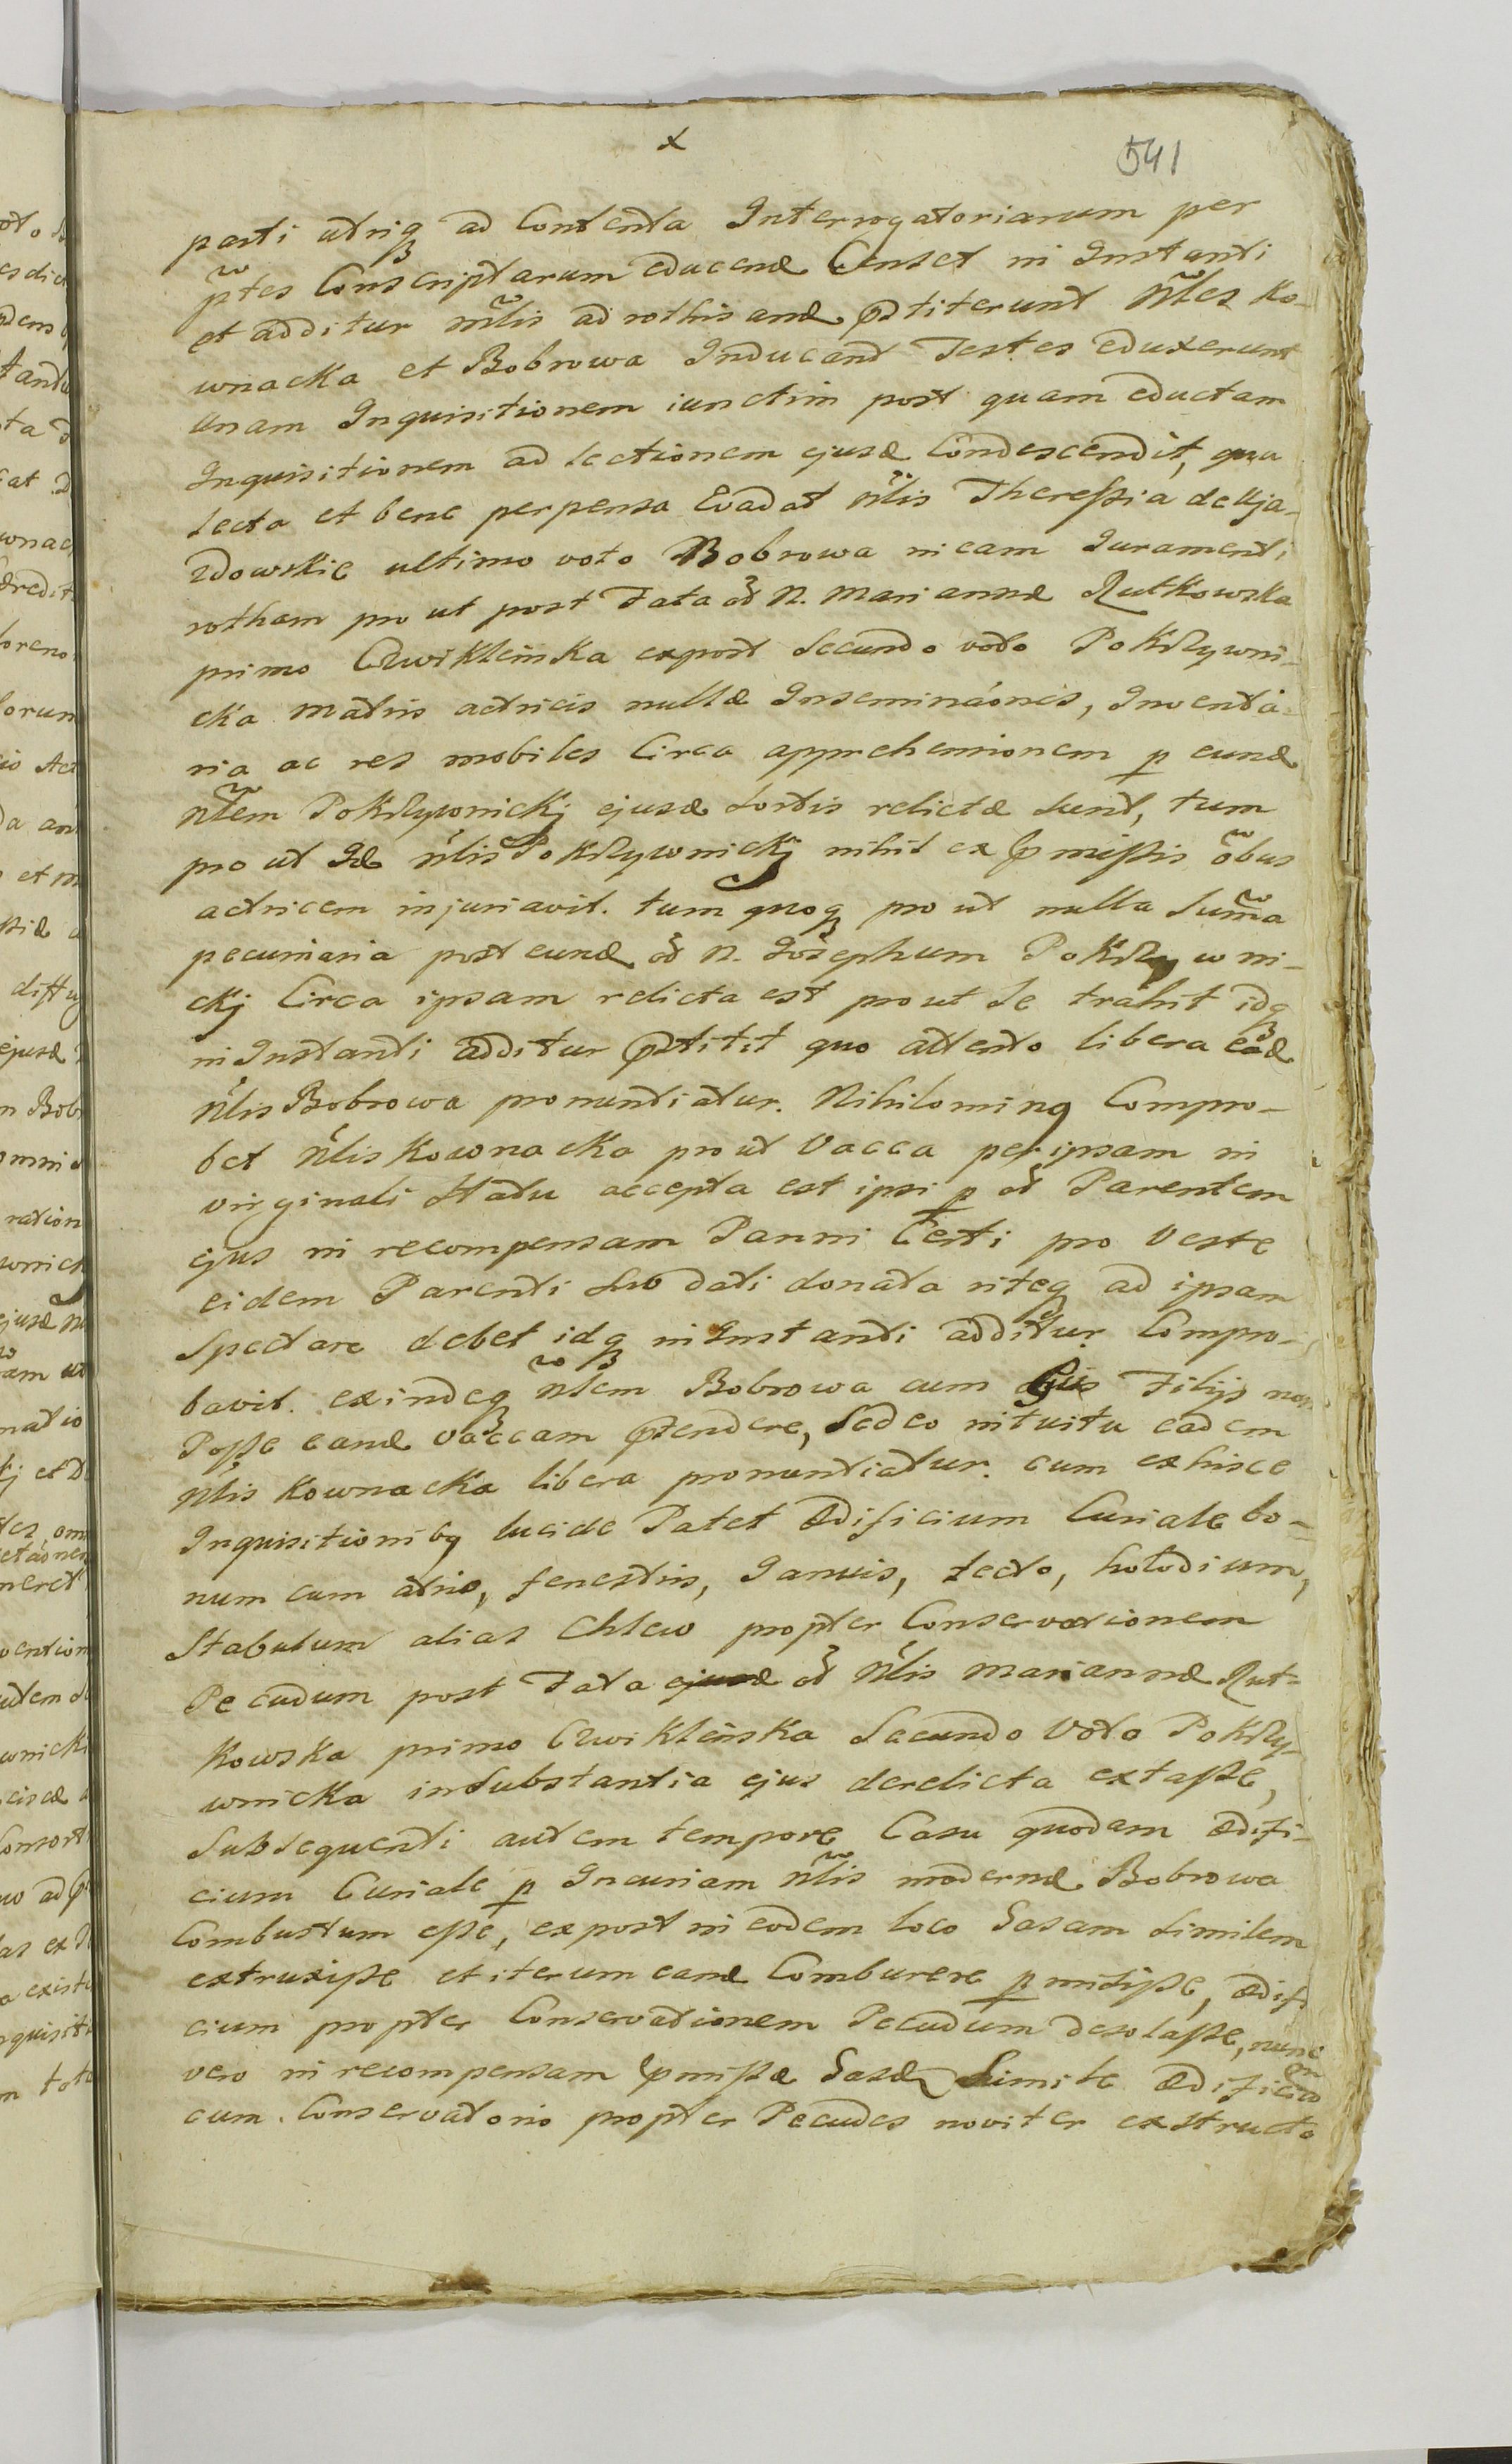 x
541
parti utriq ad Contenta Interrogatoriarum per
ptes Conscriptarum educend Censet in Instanti
et additur nlis ad rothisand prtiterunt Nles Ko-
wnacka et Bobrowa Inducand Testes eduxerunt
unam Inquisitionem iunctim post quam eductam
Inquisitionem ad lectionem ejusd Condescendit, qua
lecta et bene perpensa Evadat Nlis Theressia de
zdowskie ultimo voto Bobrowa in eam Juramenti
rotham pro ut post Fata od N. Mariannæ Rutkowska
primo Czwiklenska expost Secundo voto Pokrzywni-
cka Matris actricis nullæ Inseminaones, Inventa-
ria ac res mobiles Circa apprehensionem p eund
Nlem Pokrzywnickj ejusd Sortis relictæ Sunt, tum
pro ut Id nlis Pokrzywnickj nihil ex pmissis obus
actricem injuriavit. tum quoq pro ut nulla Suma
pecuniaria post eund od N. Josephum Pokrzywni-
ckj Circa ipsam relicta est prout Se trahit idq
in Instanti additur prtitit quo attento libera ead
Nlis Bobrowa pronuntiatur. Nihilominq Compro-
bet Nlis Kownacka prout Vacca per ipsam in
virginali Statu accepta est ipsi p od Parentem
ejus in recompensam Panni Certi pro Veste
eidem Parenti Suo dati donata riteq ad ipsam
Spectare debet idq in Instanti additur Compro-
bavit. exindeq Nlem Bobrowa cum Filijs non
Posse eand vaccam ptendere, Sed eo intuitu eadem
Nlis Kownacka libera pronuntiatur. cum ex hisce
Inquisitionibq lucide Patet Ædificium Curiale bo-
num cum atrio, fenestris, Januis, tecto,
Stabulum alias Chlew propter Conservationem
Pecudum post Fata ejusd od Nlis Mariannæ Rut-
kowska primo Czwiklenska Secundo Voto Pokrzy-
wnicka in Substantia ejus derelicta extasse,
Subsequenti autem tempore Casu quodam ædifi-
cium Curiale p Incuriam Nlis modernæ Bobrowa
Combustum esse, expost in eodem loco Casam Similem
extruxisse et iterum eand Comburere pmisisse, ædifi
cium propter Conservationem Pecudum desolasse, nunc
vero in recompensam pmissæ Casæ Simile Ædificio
cum Conservatorio propter Pecudes noviter exstructo